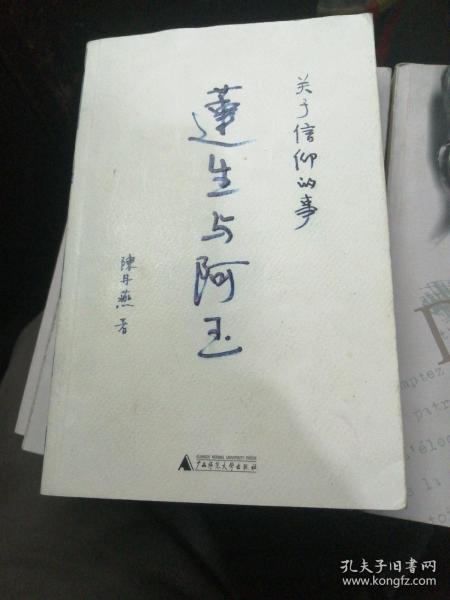 关于信仰的事
蓮生与阿玉
陳丹燕 著
GUANGXI NORMAL UNIVERSITY PRESS
广西师范大学出版社
ptez
patr
l'élec
la
孔夫子旧书网
www.kongfz.com